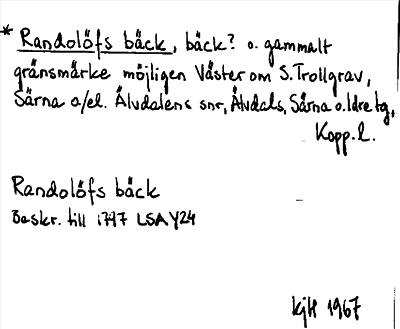 * Randolöfs bäck, bäck? o. gammalt
gränsmärke möjligen Väster om S. Trollgrav,
Särna o/el. Älvdalens snr, Älvdals, Särna o. Idre tg,
Kopp. l.
Randolöfs bäck
Beskr. till 1797 LSA Y24
kjH 1967